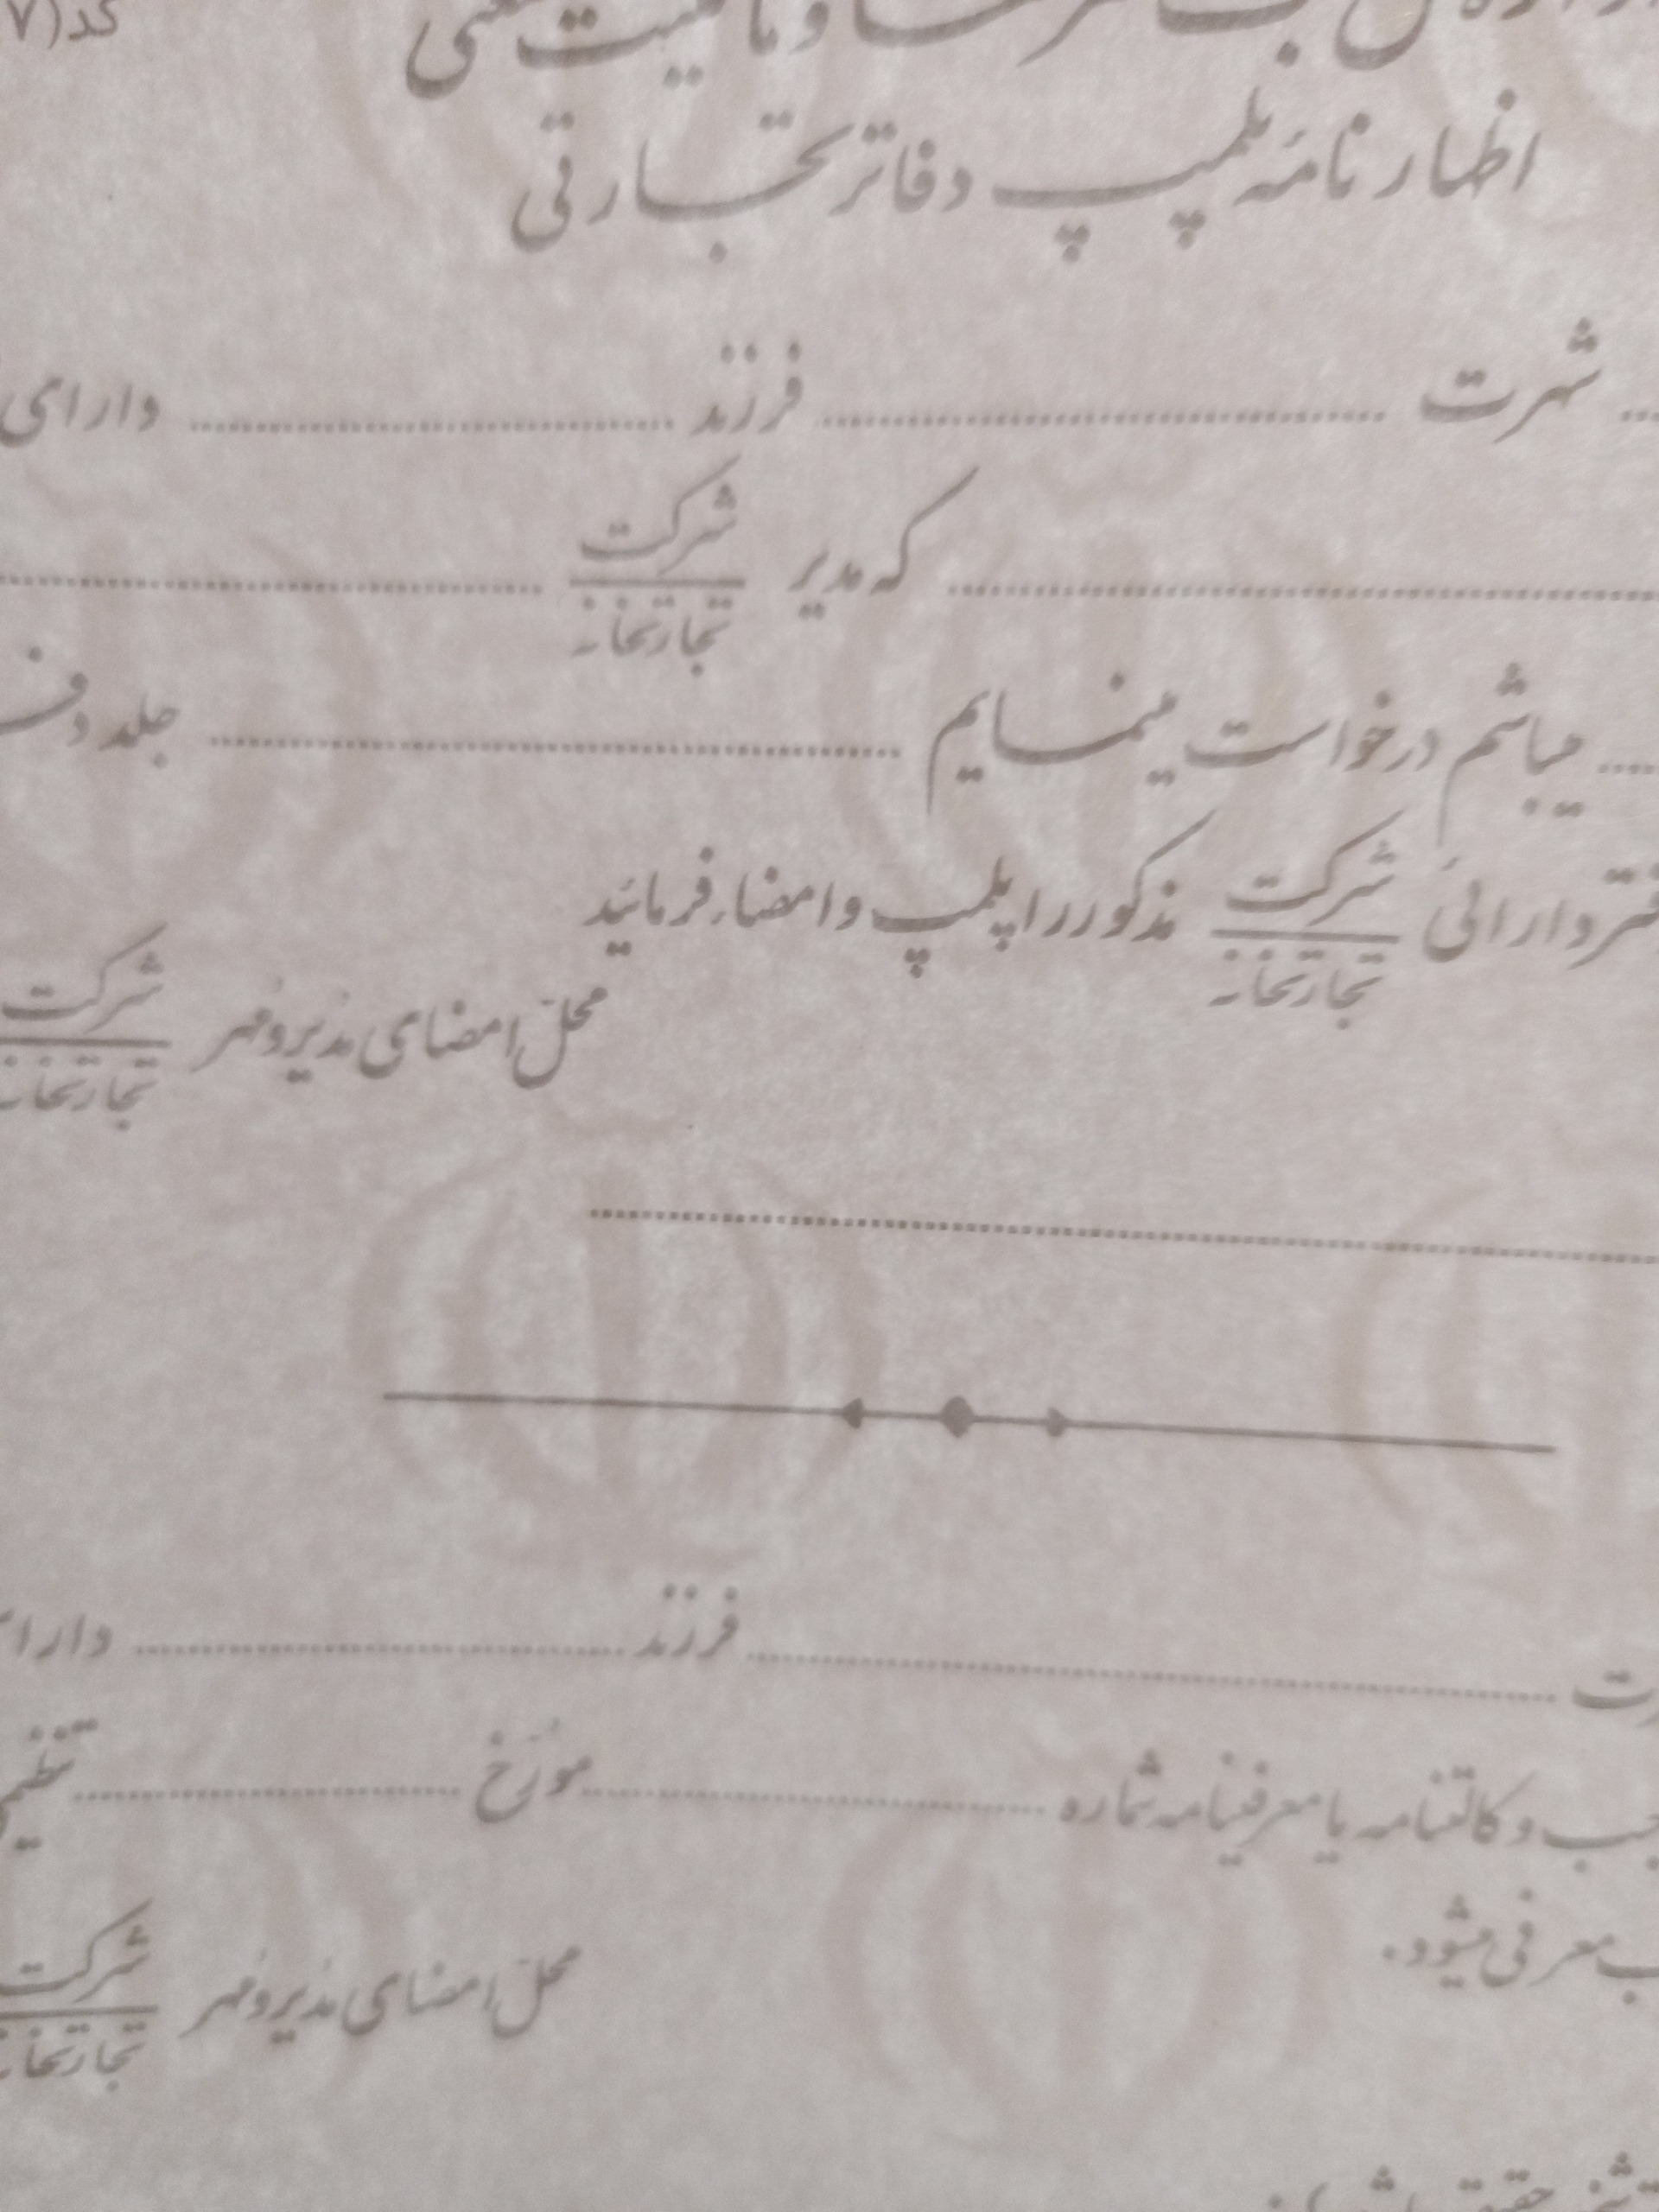 کد(۷
اظهارنامه پلمپ دفاتر تجارتی
شهرت فرزند دارای
که مدیر شرکت
تجارتخانه
میباشم درخواست مینمایم جلد
دارائی شرکت مذکور را پلمپ و امضاء فرمائید
تجارتخانه
محل امضای مدیر و مهر شرکت
تجارتخانه
فرزند
وکالتنامه یا معرفینامه شماره مورخ تنظیم
معرفی میشود.
محل امضای مدیر و مهر شرکت
تجارتخانه